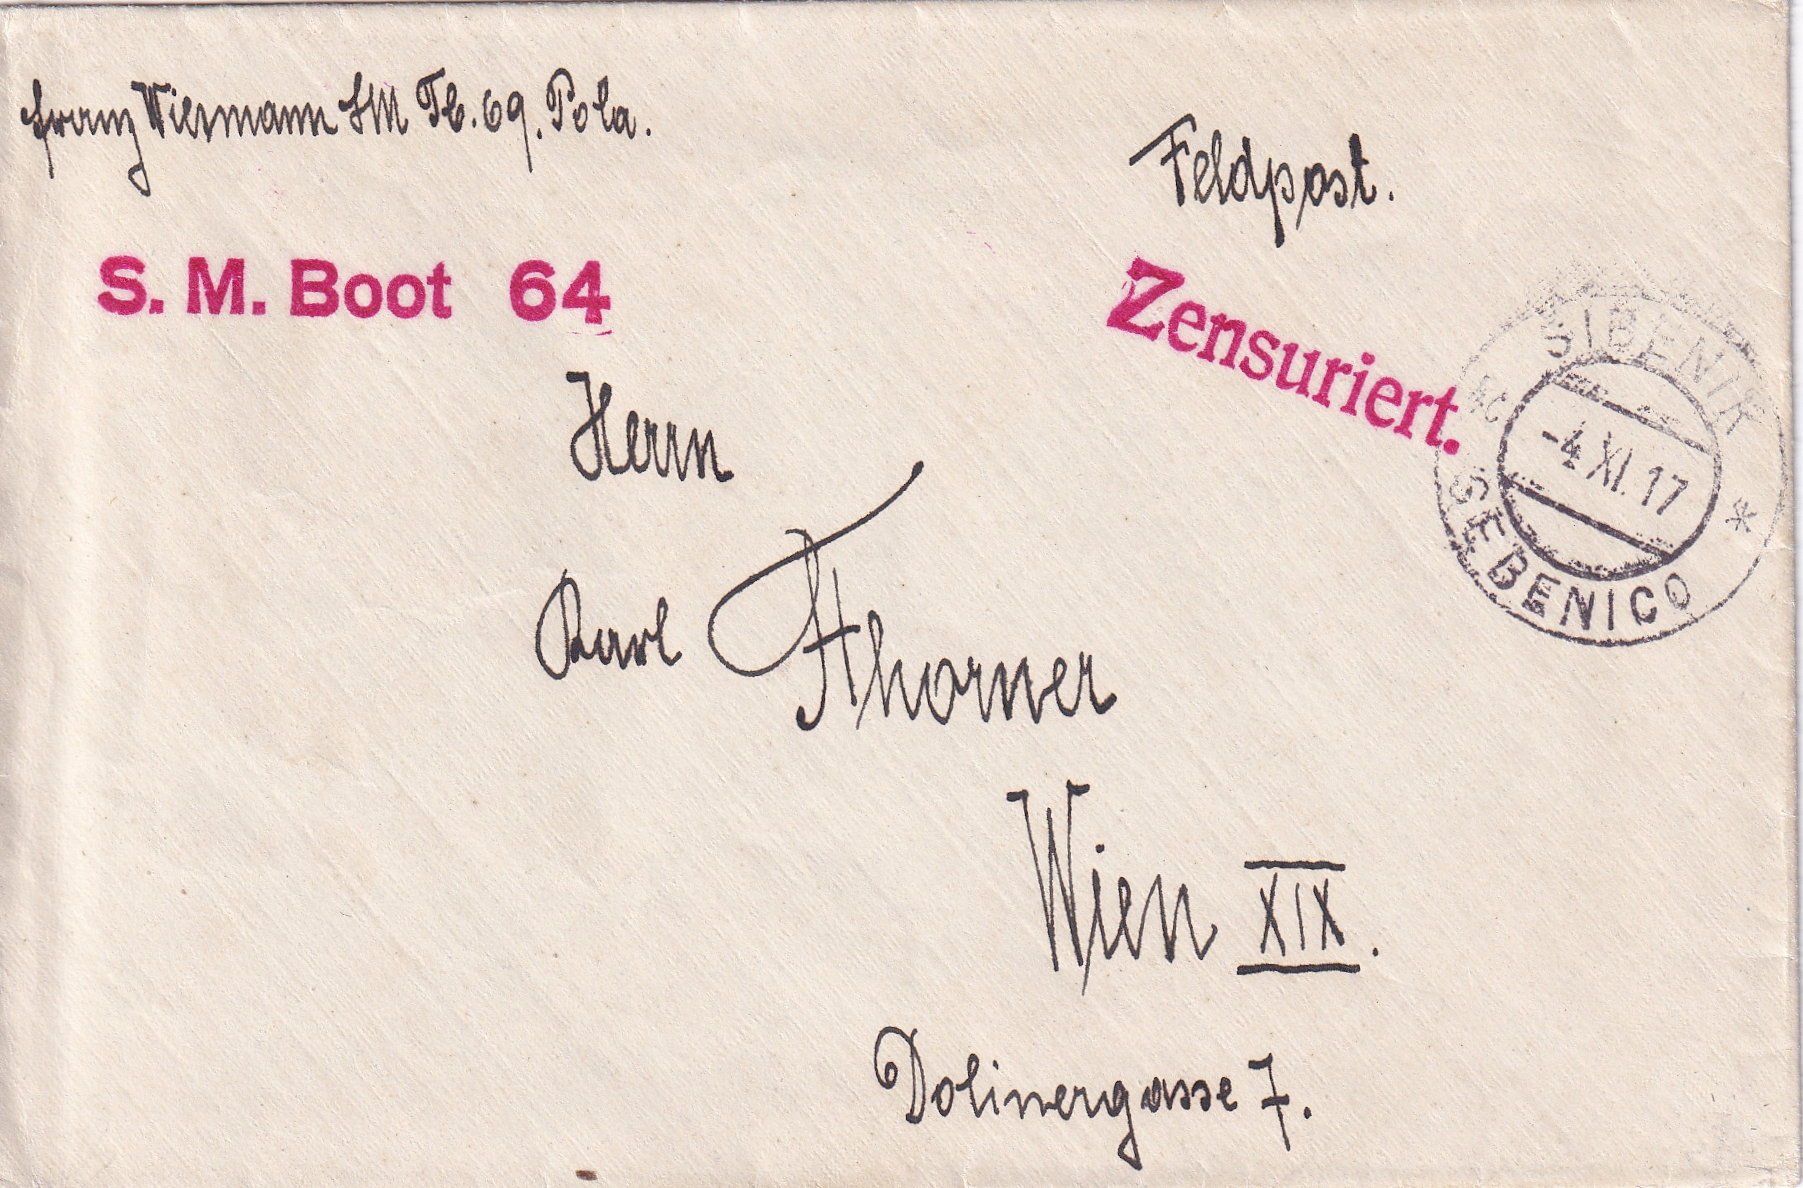 Franz Wiesmann SM Tb. 69. Pola.
Feldpost.
S. M. Boot 64
Zensuriert.
ŠIBENIK
-4 XI. 17
*
SEBENICO
Herrn
Karl Thorner
Wien XIX.
Dolinergasse 7.